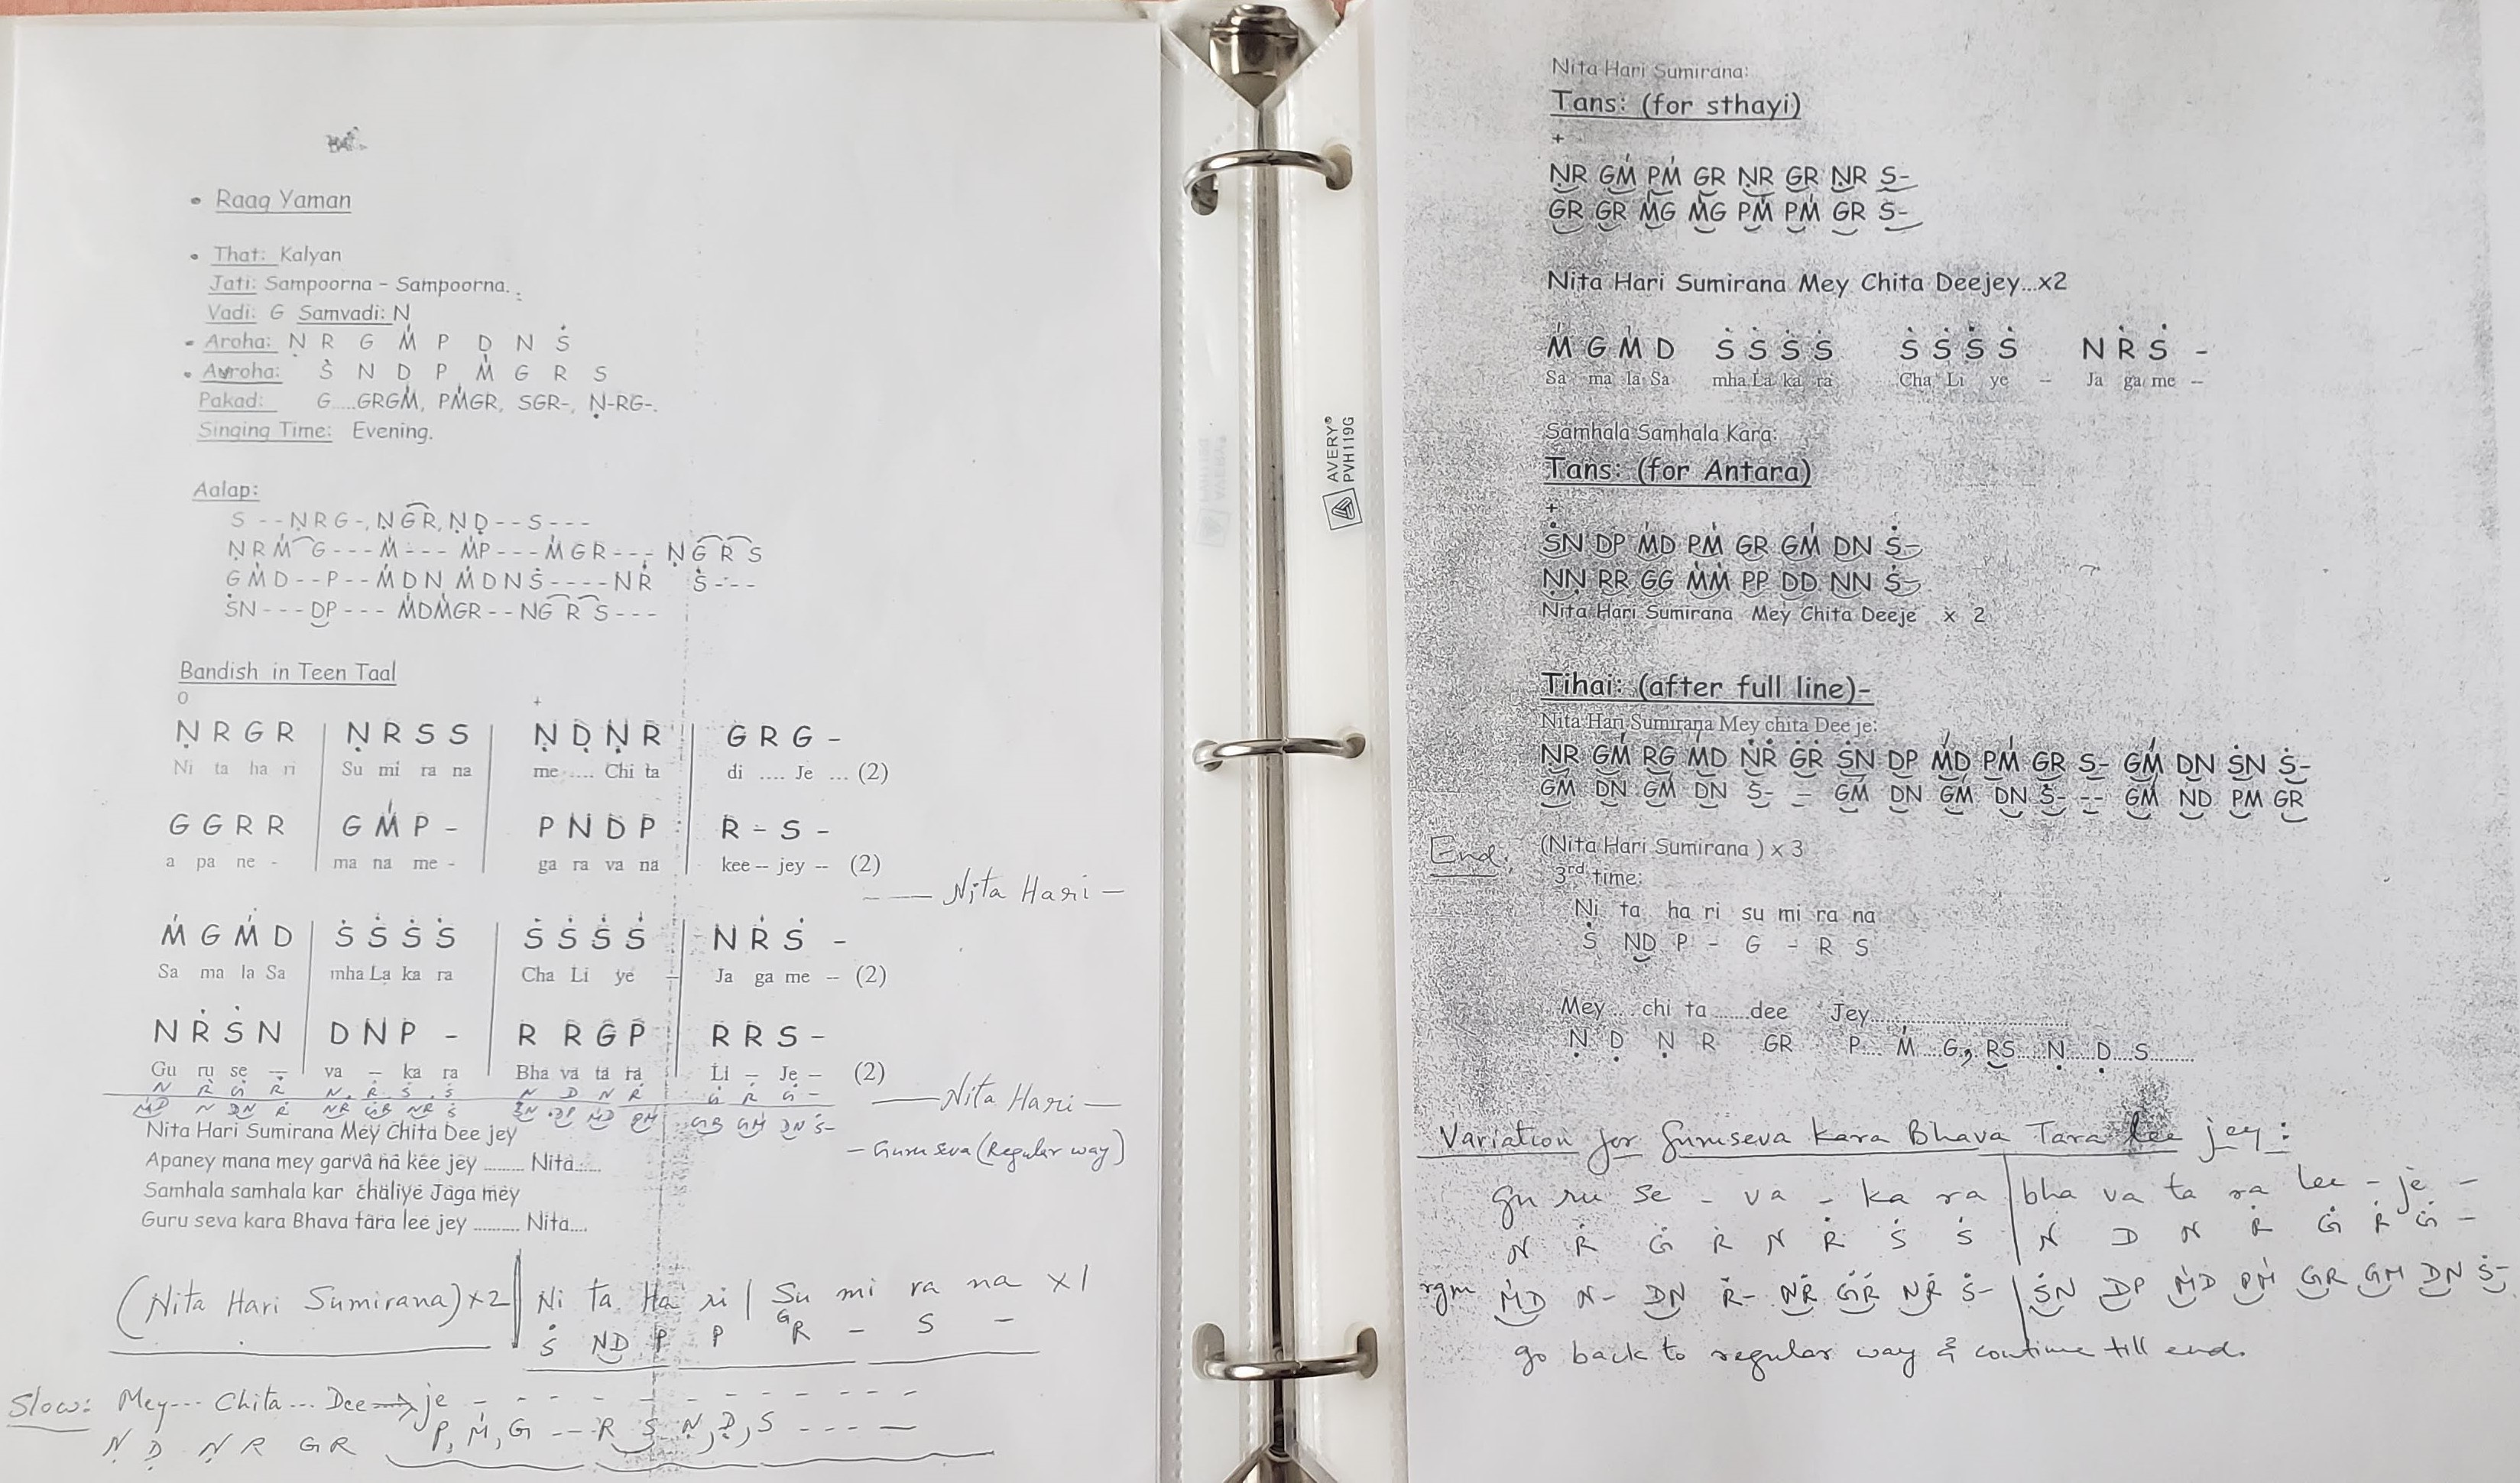 Raag Yaman
That: Kalyan
Jati: Sampoorna - Sampoorna.
Vadi: G Samvadi: N
Aroha: Ṇ R G Ḿ P D N Ṡ
Avroha: Ṡ N D P Ḿ G R S
Pakad: G....GRGḾ, PḾGR, SGR-, Ṇ-RG-.
Singing Time: Evening.
Aalap:
S --ṆRG-, ṆGR, ṆḌ--S---
ṆRḾG---Ḿ--- ḾP---ḾGR--- ṆGRS
GḾD--P--ḾDN ḾDNṠ----NṘ Ṡ---
ṠN---DP--- ḾDḾGR--NGRS---
Bandish in Teen Taal
0 +
Ṇ R G R | Ṇ R S S | Ṇ Ḍ Ṇ R | G R G -
Ni ta ha ri Su mi ra na me .... Chi ta di .... Je ... (2)
G G R R | G Ḿ P - | P N D P | R - S -
a pa ne - ma na me - ga ra va na kee -- jey -- (2)
—— Nita Hari —
Ḿ G Ḿ D | Ṡ Ṡ Ṡ Ṡ | Ṡ Ṡ Ṡ Ṡ | N Ṙ Ṡ -
Sa ma la Sa mha La ka ra Cha Li ye – Ja ga me – (2)
N Ṙ Ṡ N | D N P - | R R G P | R R S -
Gu ru se — va – ka ra Bha va ta ra Li – Je – (2)
N Ṙ Ġ Ṙ N Ṙ Ṡ Ṡ N D N Ṙ Ġ Ṙ Ġ -
—— Nita Hari —
ḾD N DN Ṙ NṘ ĠṘ NṘ Ṡ ṠN DP ḾD PḾ GR GḾ DN Ṡ-
Nita Hari Sumirana Mey Chita Dee jey
— Guru seva (Regular way)
Apaney mana mey garva na kee jey ......... Nita.....
Samhala samhala kar chaliye Jaga mey
Guru seva kara Bhava tara lee jey .......... Nita....
(Nita Hari Sumirana) x2 || Ni ta Ha ri | Su mi ra na x1
Ṡ ND P P GR – S –
Slow: Mey--- Chita... Dee→je - - - - - - - - - - -
Ṇ Ḍ Ṇ R GR P, Ḿ, G --- R S Ṇ, Ḍ, S - - - - —
AVERY®
PVH119G
Nita Hari Sumirana:
Tans: (for sthayi)
+
ṆR GḾ PḾ GR ṆR GR ṆR S-
GR GR ḾG ḾG PḾ PḾ GR S-
Nita Hari Sumirana Mey Chita Deejey...x2
Ḿ G Ḿ D Ṡ Ṡ Ṡ Ṡ Ṡ Ṡ Ṡ Ṡ N Ṙ Ṡ -
Sa ma la Sa mha La ka ra Cha Li ye – Ja ga me –
Samhala Samhala Kara:
Tans: (for Antara)
+
ṠN DP ḾD PḾ GR GḾ DN Ṡ-
ṆṆ RR GG ḾḾ PP DD NN Ṡ-
Nita Hari Sumirana Mey Chita Deeje x 2
Tihai: (after full line)-
Nita Hari Sumirana Mey chita Dee je:
ṆR GḾ RG ḾD NṘ ĠṘ ṠN DP ḾD PḾ GR S- GḾ DN ṠN Ṡ-
GḾ DN GḾ DN Ṡ- – GḾ DN GḾ DN Ṡ- -- GḾ ND PM GR
End: (Nita Hari Sumirana ) x 3
3rd time:
Ni ta ha ri su mi ra na
Ṡ ND P - G - R S
Mey .... chi ta ......dee Jey..................
Ṇ Ḍ Ṇ R GR P.... Ḿ G, RS Ṇ Ḍ S.........
Variation for Guruseva kara Bhava Tara lee jey:
gu ru se - va - ka ra | bha va ta ra lee - je -
N Ṙ Ġ Ṙ N Ṙ Ṡ Ṡ | N D N Ṙ Ġ Ṙ Ġ –
rgm ḾD N- DN Ṙ- NṘ ĠṘ NṘ Ṡ- | ṠN DP ḾD PḾ GR GM DN Ṡ-
go back to regular way & continue till end.